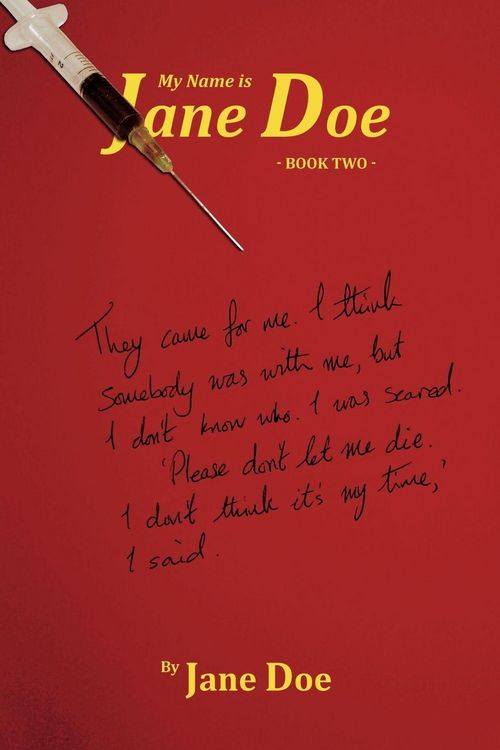 My Name is
Jane Doe
- BOOK TWO -
They came for me. I think
somebody was with me, but
I don't know who. I was scared.
'Please don't let me die.
I don't think it's my time,'
I said.
By Jane Doe